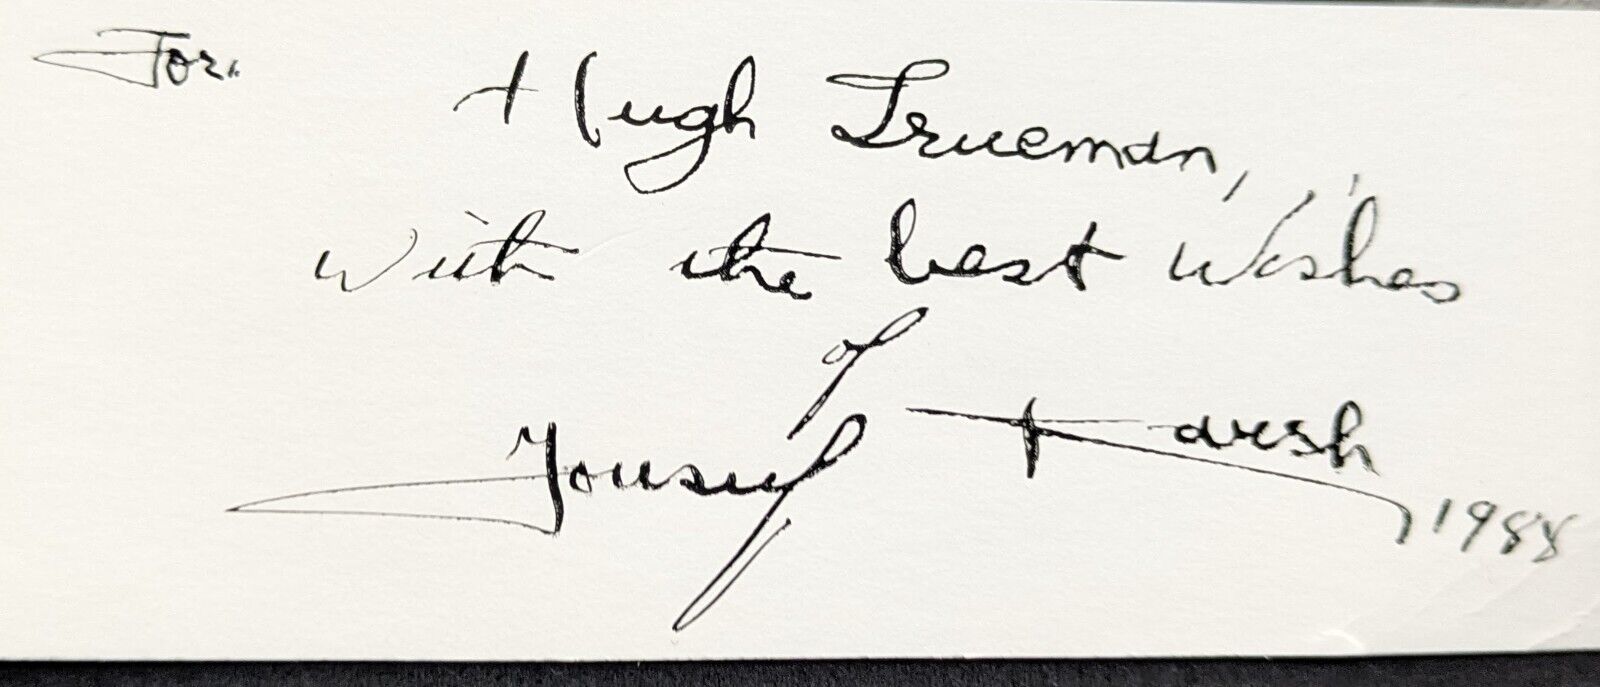 For:
Hugh Trueman,
With the best Wishes
of
Yousuf Karsh
1988